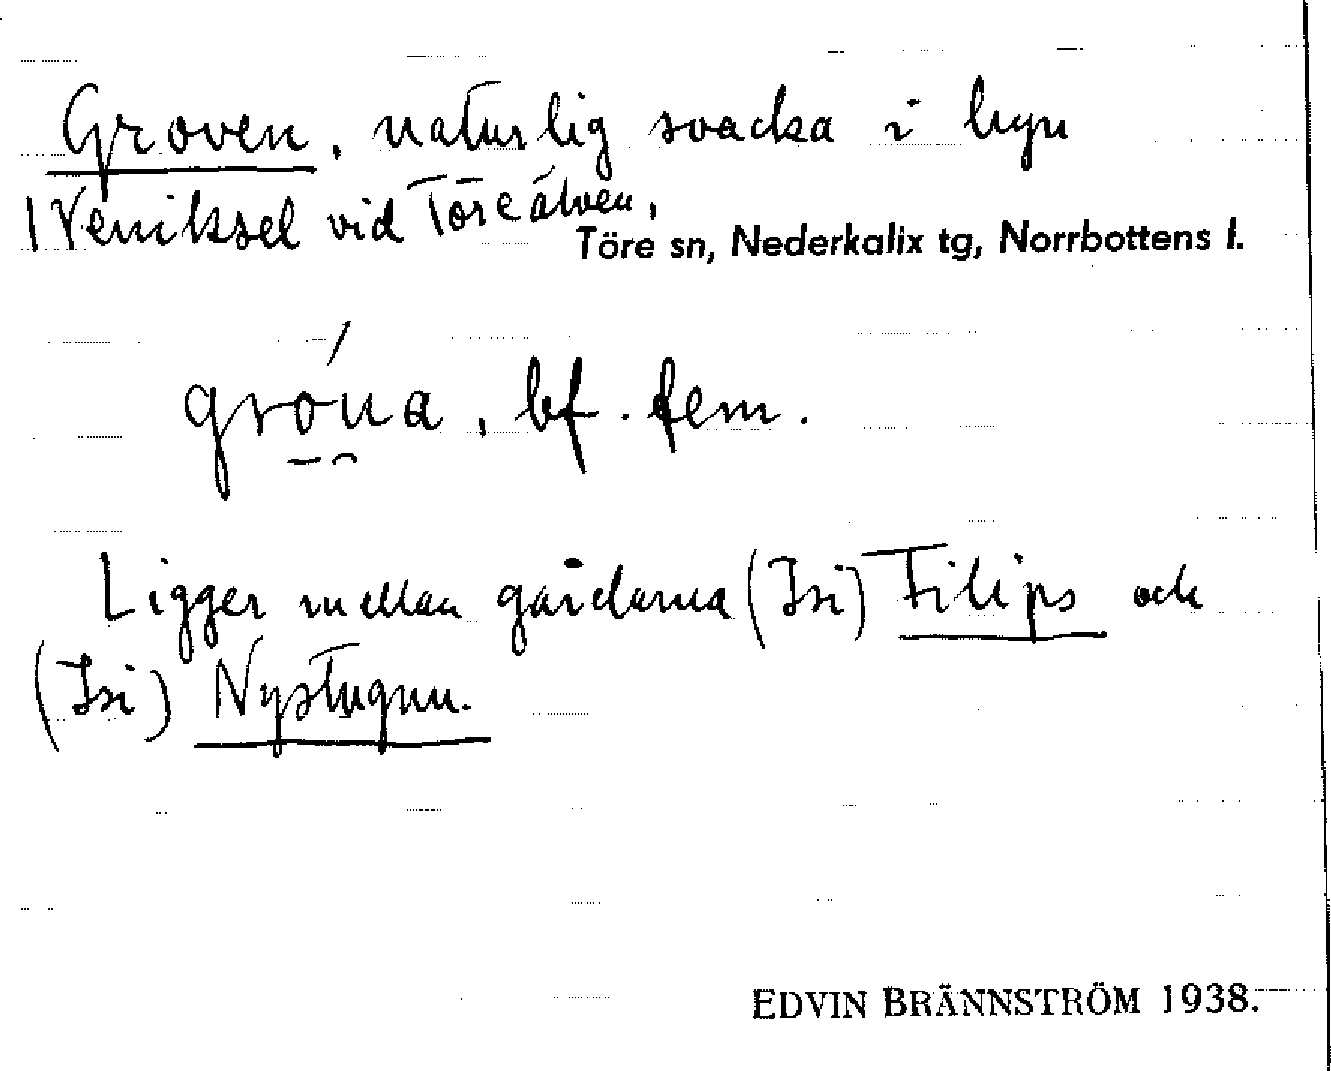 Groven, naturlig svacka i byn
| Veniksel vid Töreälven,
Töre sn, Nederkalix tg, Norrbottens l.
gróua, bf. fem.
Ligger mellan gårdarna (Isi) Filips och
(Isi) Nystugun.
EDVIN BRÄNNSTRÖM 1938.